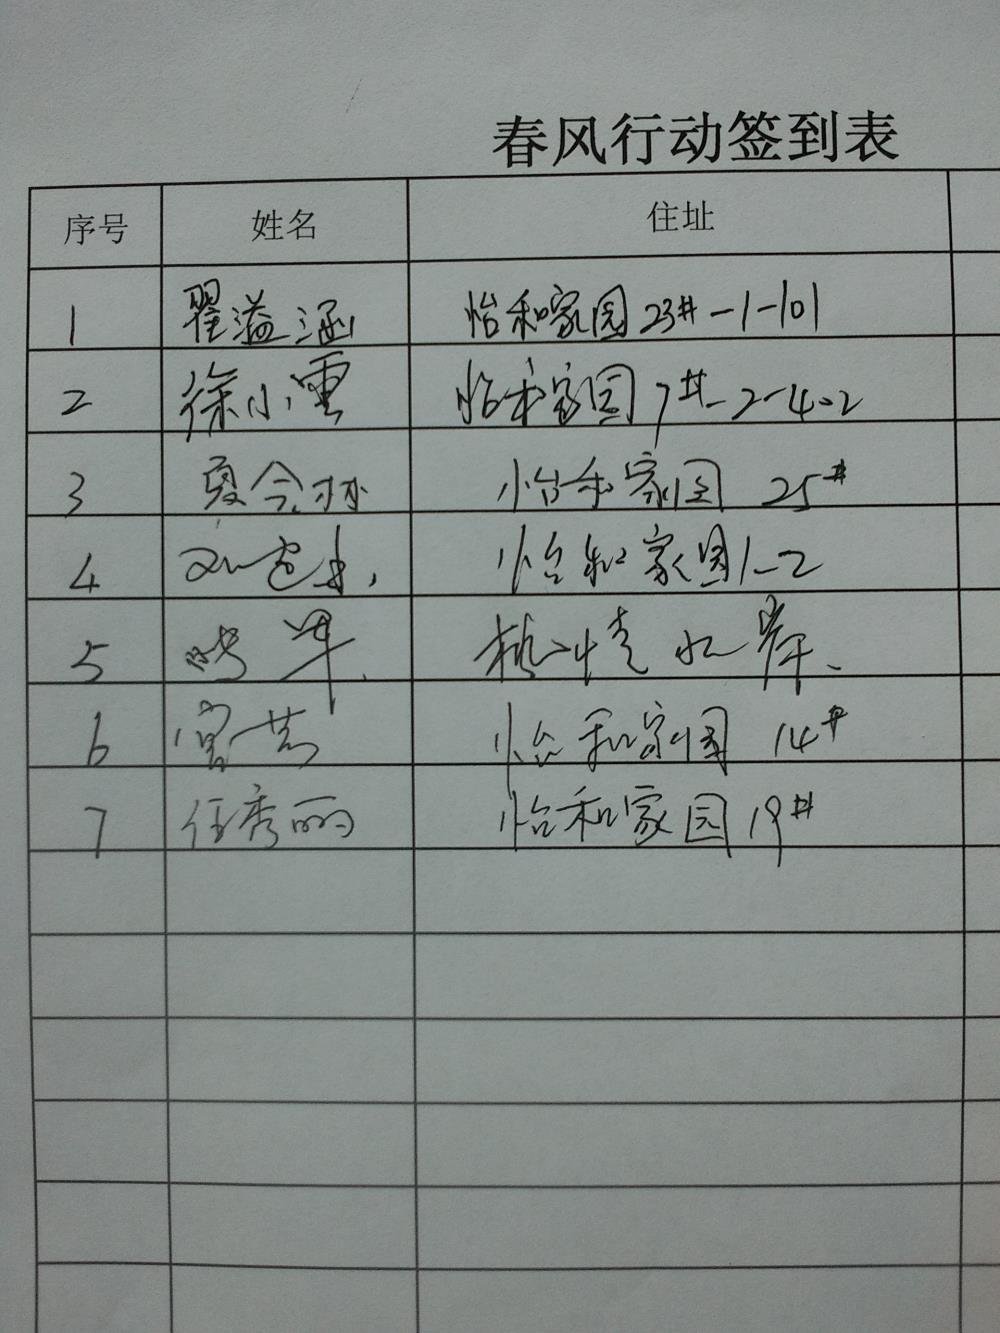 春风行动签到表
序号 姓名 住址
1 翟溢涵 怡和家园23#-1-101
2 徐小雪 怡和家园7#-2-402
3 夏令 怡和家园 25#
4 怡和家园1-2
5 水岸
6 怡和家园 14#
7 任秀丽 怡和家园19#